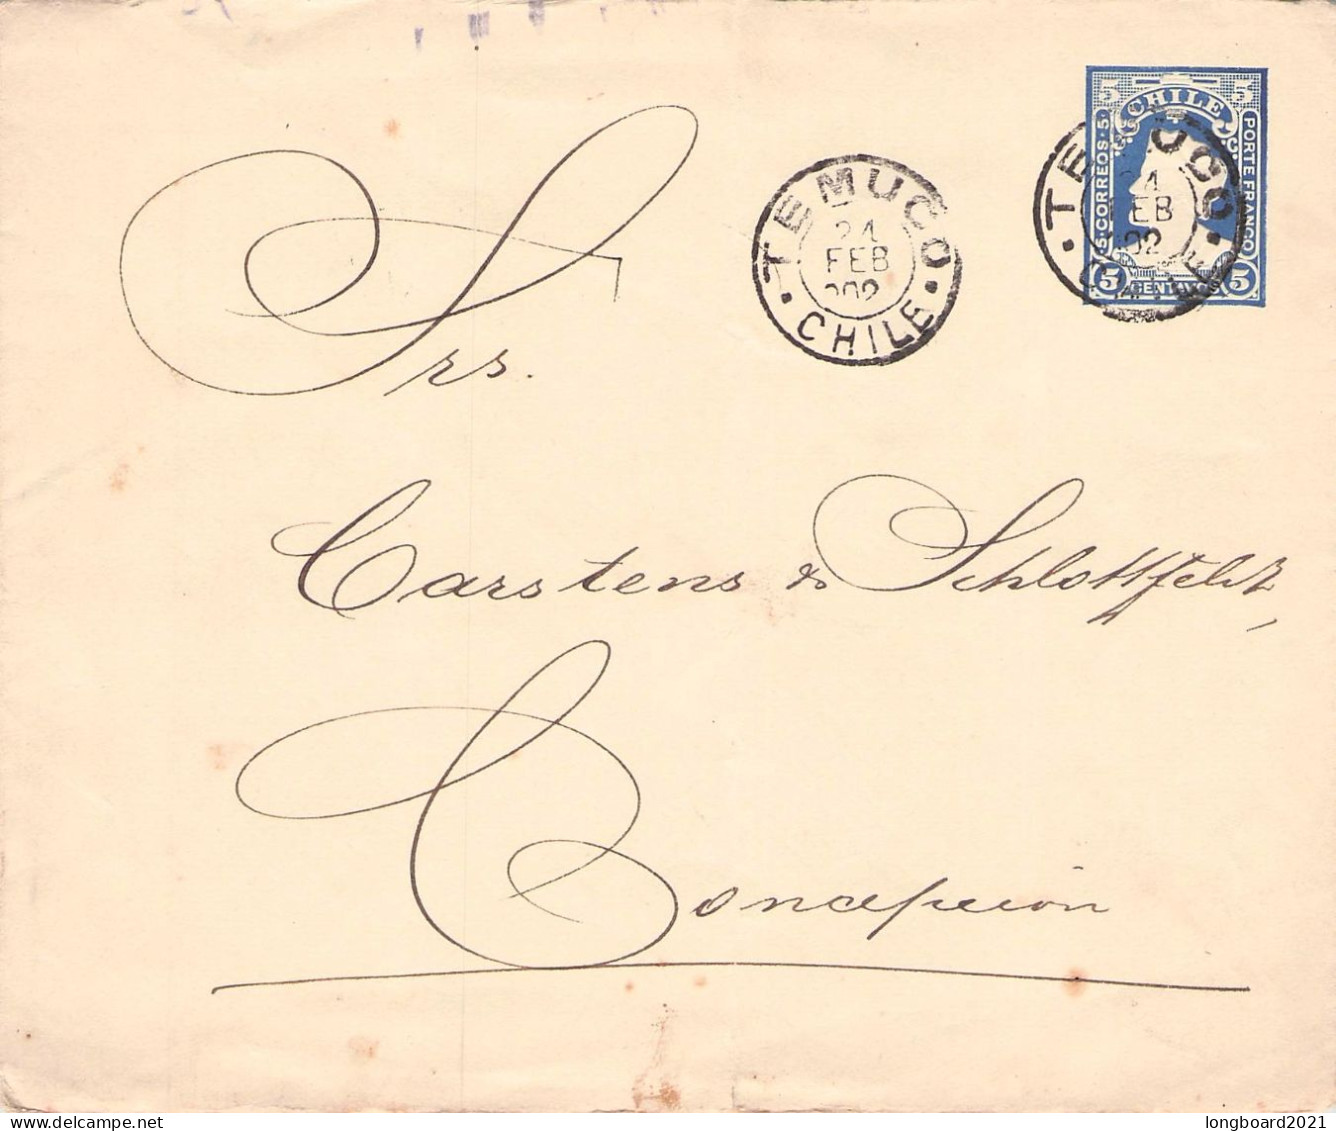 5 CHILE 5
5·CORREOS·5
PORTE FRANCO
5 CENTAVOS 5
TEMUCO
24
FEB
902
·CHILE·
TEMUCO
24
FEB
02
Srs.
Carstens & Schlottfeldt,
Concepción
longboard2021